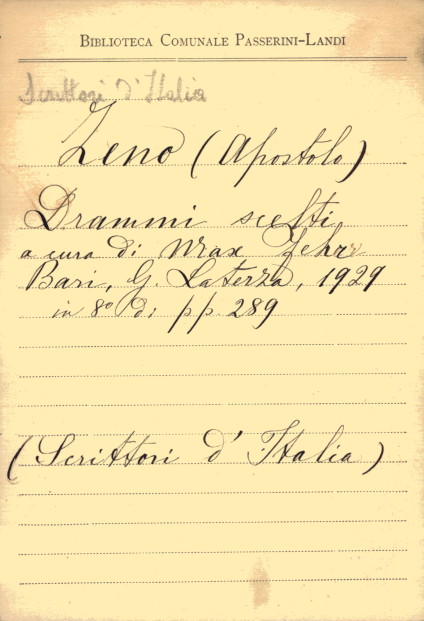 BIBLIOTECA COMUNALE PASSERINI-LANDI
Scrittori d'Italia
Zeno (Apostolo)
Drammi scelti
a cura di Max Fehr
Bari, G. Laterza, 1929
in 8° di pp. 289
(Scrittori d'Italia)